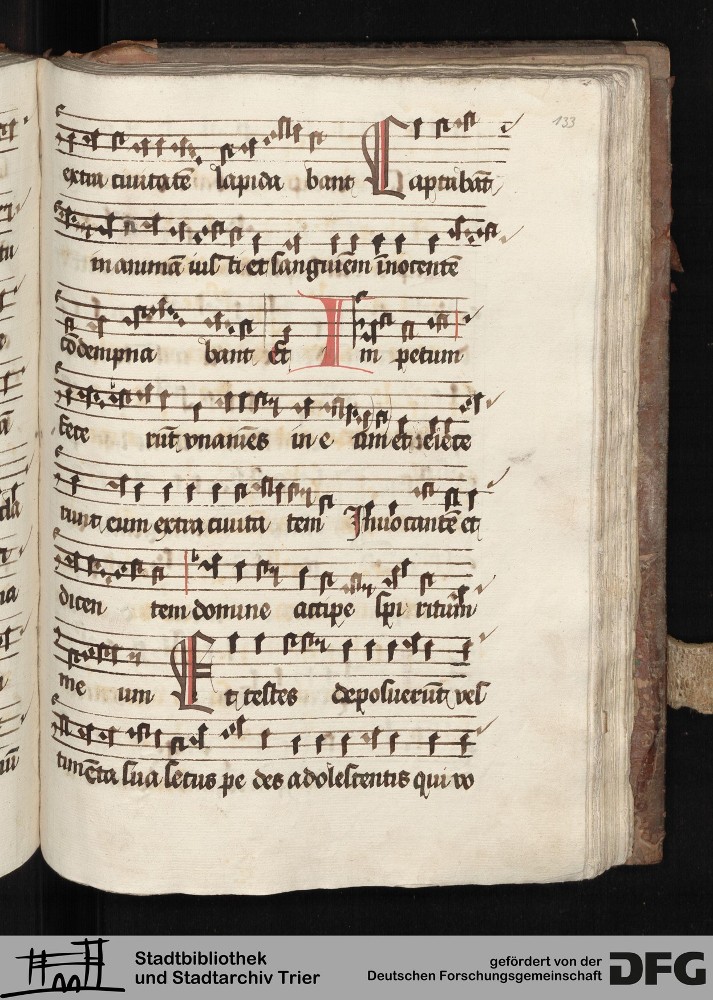 133
extra ciuitatē lapida bant Captabāt
in animā iusti et sanguinem īnocentē
cōdempna bant Et Im petum
fece rūt vnanimes in e um et eiece
runt eum extra ciuita tem Inuocantē et
dicen tem domine accipe spi ritum
me um Et testes deposuerūt ves
timēta sua secus pe des adolescentis qui vo
Stadtbibliothek
und Stadtarchiv Trier
gefördert von der
Deutschen Forschungsgemeinschaft
DFG